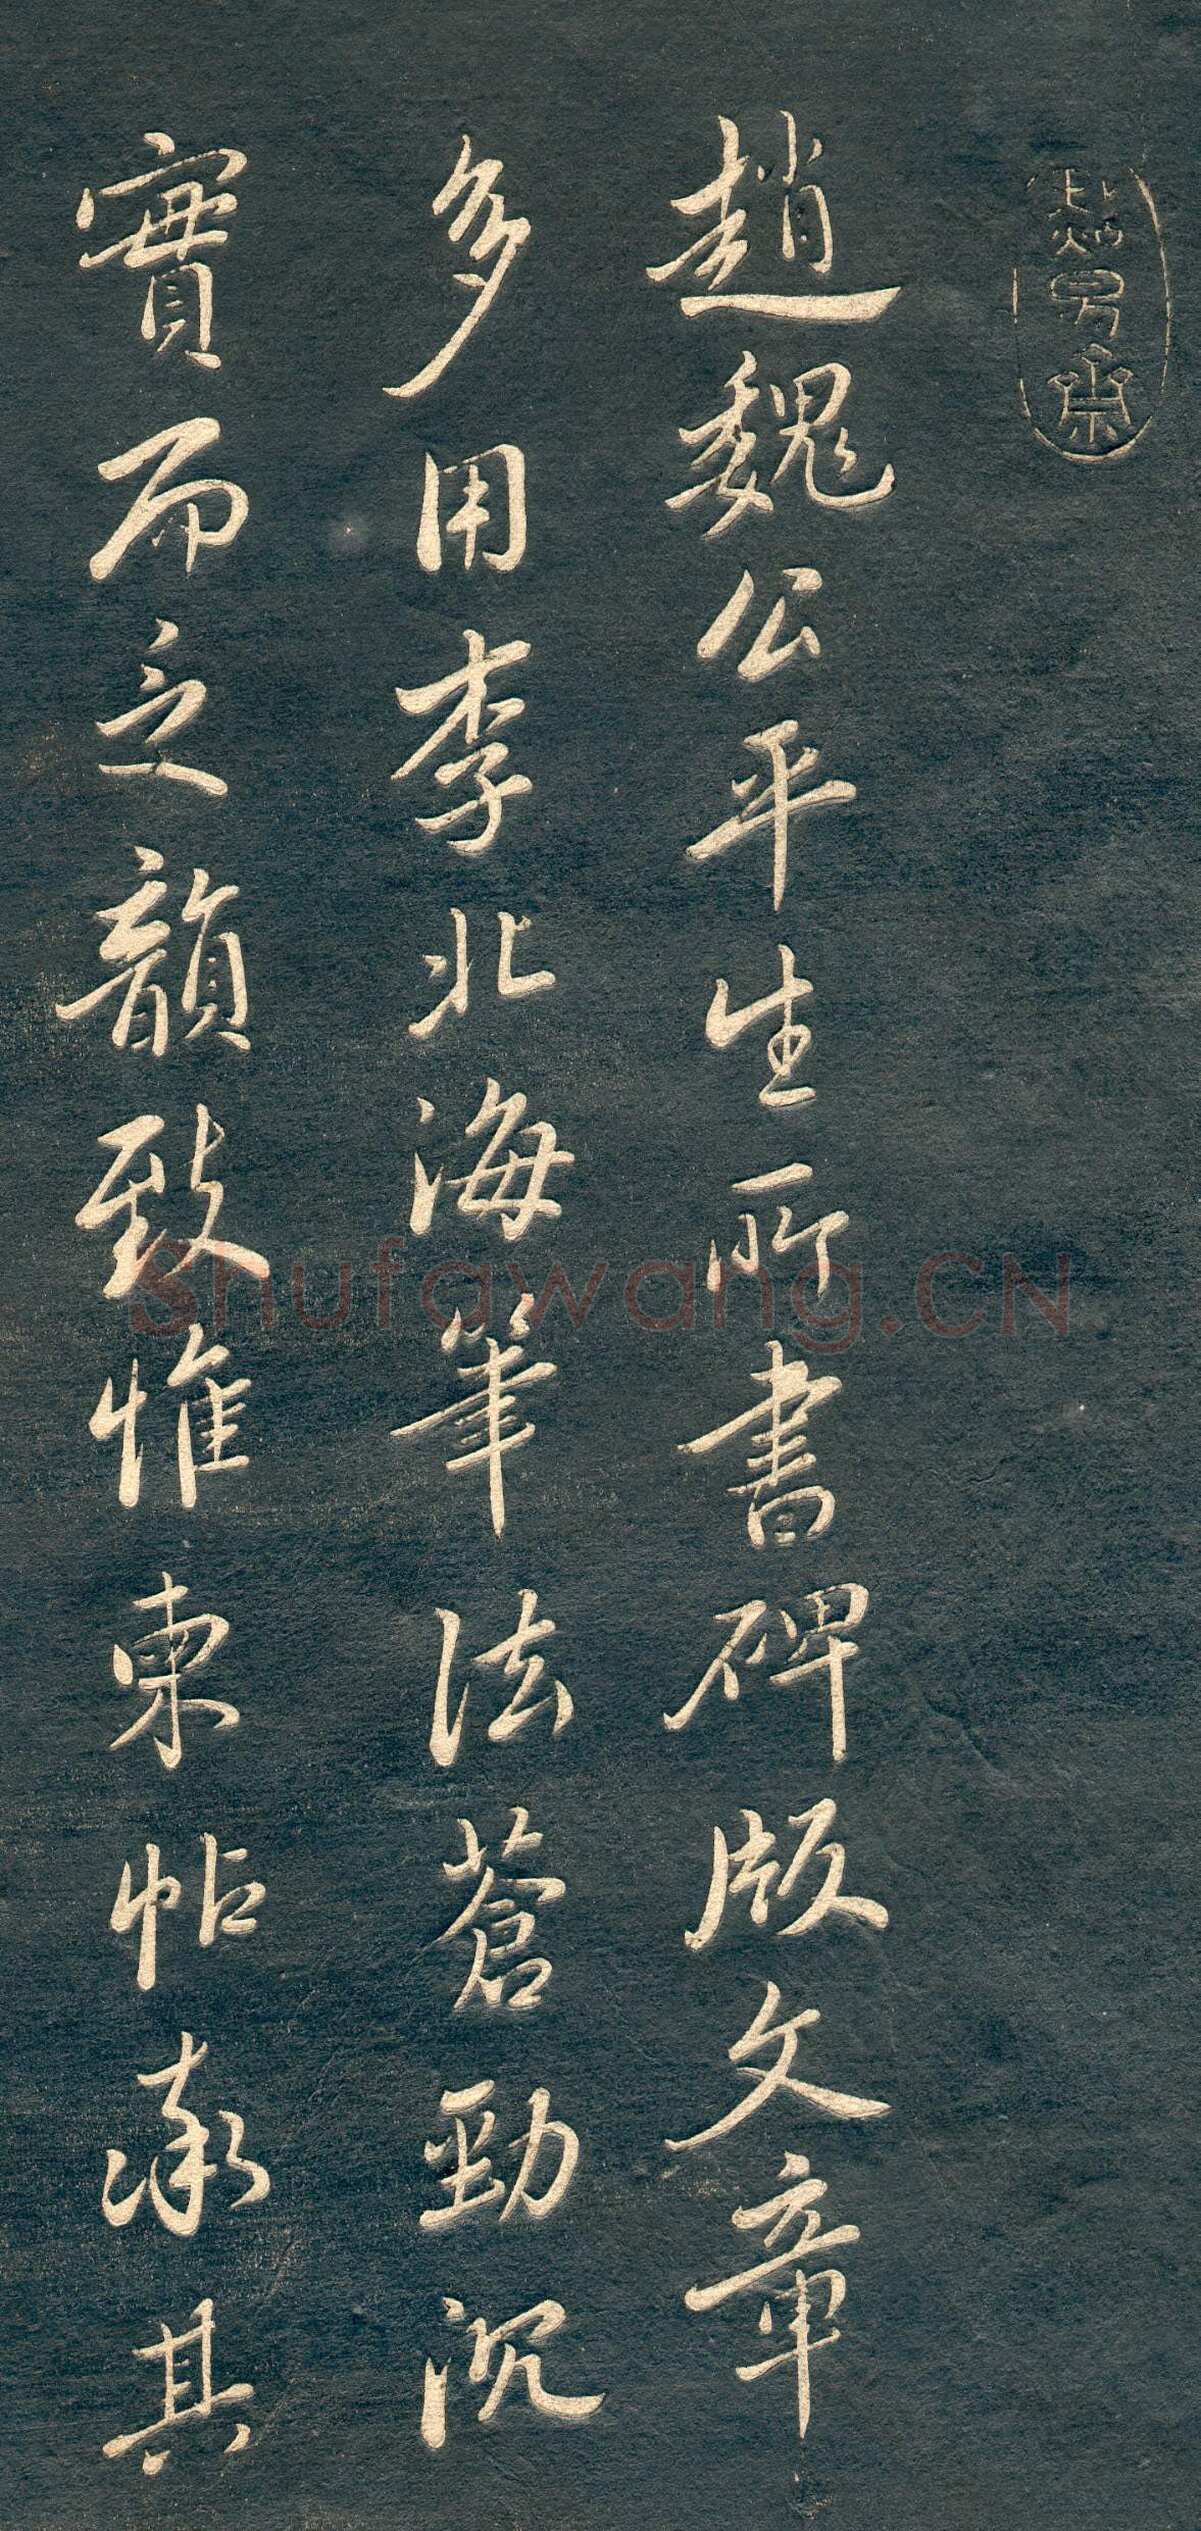 趙魏公平生所書碑版文章
多用李北海筆法蒼勁沉
實而乏韻致惟柬帖家其
Shufawang.CN